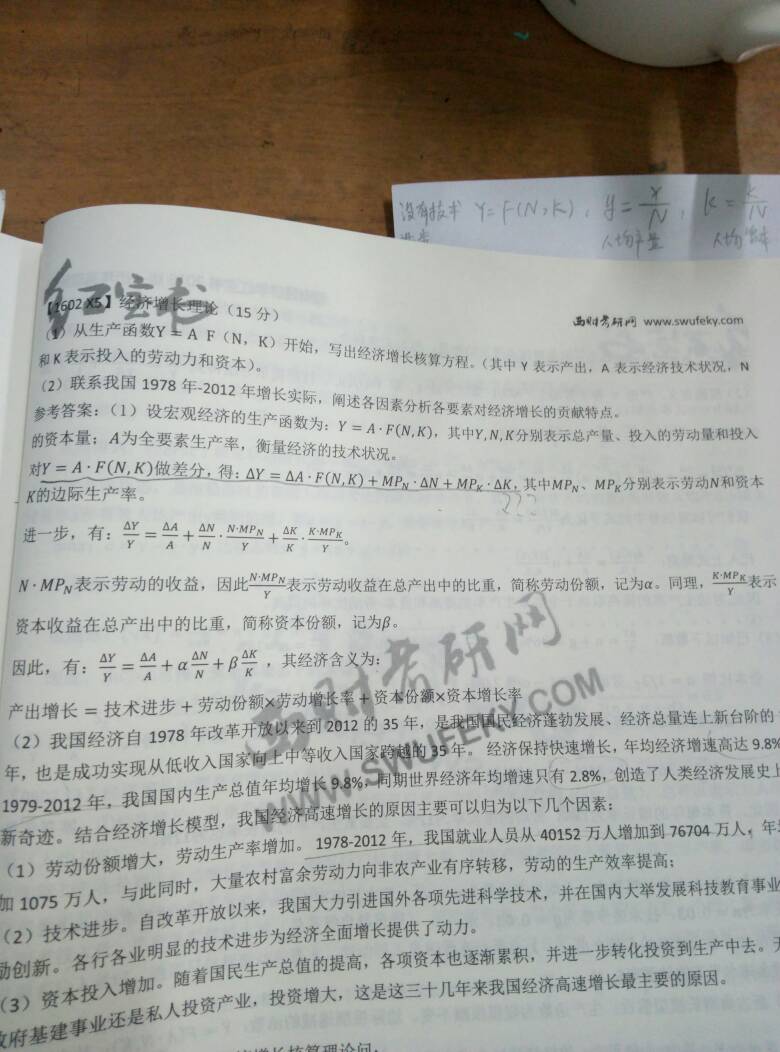 没有技术 Y=F(N,K), y=Y/N, k=K/N
进步 人均产量 人均资本
红宝书
西财考研网 www.swufeky.com
【1602 X5】经济增长理论（15 分）
（1）从生产函数Y = A F（N，K）开始，写出经济增长核算方程。（其中 Y 表示产出，A 表示经济技术状况，N
和 K 表示投入的劳动力和资本）。
（2）联系我国 1978 年-2012 年增长实际，阐述各因素分析各要素对经济增长的贡献特点。
参考答案：（1）设宏观经济的生产函数为：Y = A·F(N,K)，其中Y,N,K分别表示总产量、投入的劳动量和投入
的资本量；A为全要素生产率，衡量经济的技术状况。
对Y = A·F(N,K)做差分，得：ΔY = ΔA·F(N,K) + MP_N·ΔN + MP_K·ΔK，其中MP_N、MP_K分别表示劳动N和资本
???
K的边际生产率。
进一步，有：ΔY/Y = ΔA/A + ΔN/N · N·MP_N/Y + ΔK/K · K·MP_K/Y。
N·MP_N表示劳动的收益，因此N·MP_N/Y表示劳动收益在总产出中的比重，简称劳动份额，记为α。同理，K·MP_K/Y表示
资本收益在总产出中的比重，简称资本份额，记为β。
因此，有：ΔY/Y = ΔA/A + α ΔN/N + β ΔK/K，其经济含义为：
产出增长 = 技术进步 + 劳动份额×劳动增长率 + 资本份额×资本增长率
（2）我国经济自 1978 年改革开放以来到 2012 的 35 年，是我国国民经济蓬勃发展、经济总量连上新台阶的
年，也是成功实现从低收入国家向上中等收入国家跨越的 35 年。 经济保持快速增长，年均经济增速高达 9.8%
1979-2012 年，我国国内生产总值年均增长 9.8%，同期世界经济年均增速只有 2.8%，创造了人类经济发展史上
新奇迹。结合经济增长模型，我国经济高速增长的原因主要可以归为以下几个因素：
（1）劳动份额增大，劳动生产率增加。1978-2012 年，我国就业人员从 40152 万人增加到 76704 万人，年均
加 1075 万人，与此同时，大量农村富余劳动力向非农产业有序转移，劳动的生产效率提高；
（2）技术进步。自改革开放以来，我国大力引进国外各项先进科学技术，并在国内大举发展科技教育事业
励创新。各行各业明显的技术进步为经济全面增长提供了动力。
（3）资本投入增加。随着国民生产总值的提高，各项资本也逐渐累积，并进一步转化投资到生产中去。无
政府基建事业还是私人投资产业，投资增大，这是这三十几年来我国经济高速增长最主要的原因。
西财考研网
WWW.SWUFEKY.COM